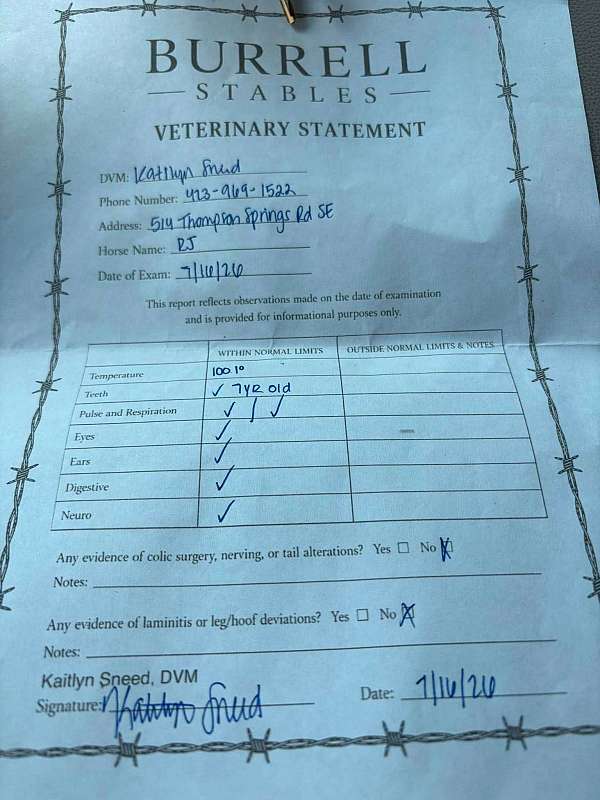 BURRELL
STABLES
VETERINARY STATEMENT
DVM: Kaitlyn Sneed
Phone Number: 423-969-1522
Address: 514 Thompson Springs Rd SE
Horse Name: RJ
Date of Exam: 7/16/26
This report reflects observations made on the date of examination
and is provided for informational purposes only.
WITHIN NORMAL LIMITS OUTSIDE NORMAL LIMITS & NOTES
Temperature 100.1°
Teeth ✓ 7yr old
Pulse and Respiration ✓ / ✓
Eyes ✓
Ears ✓
Digestive ✓
Neuro ✓
Any evidence of colic surgery, nerving, or tail alterations? Yes ☐ No ☒
Notes:
Any evidence of laminitis or leg/hoof deviations? Yes ☐ No ☒
Notes:
Kaitlyn Sneed, DVM
Signature: Kaitlyn Sneed Date: 7/16/26